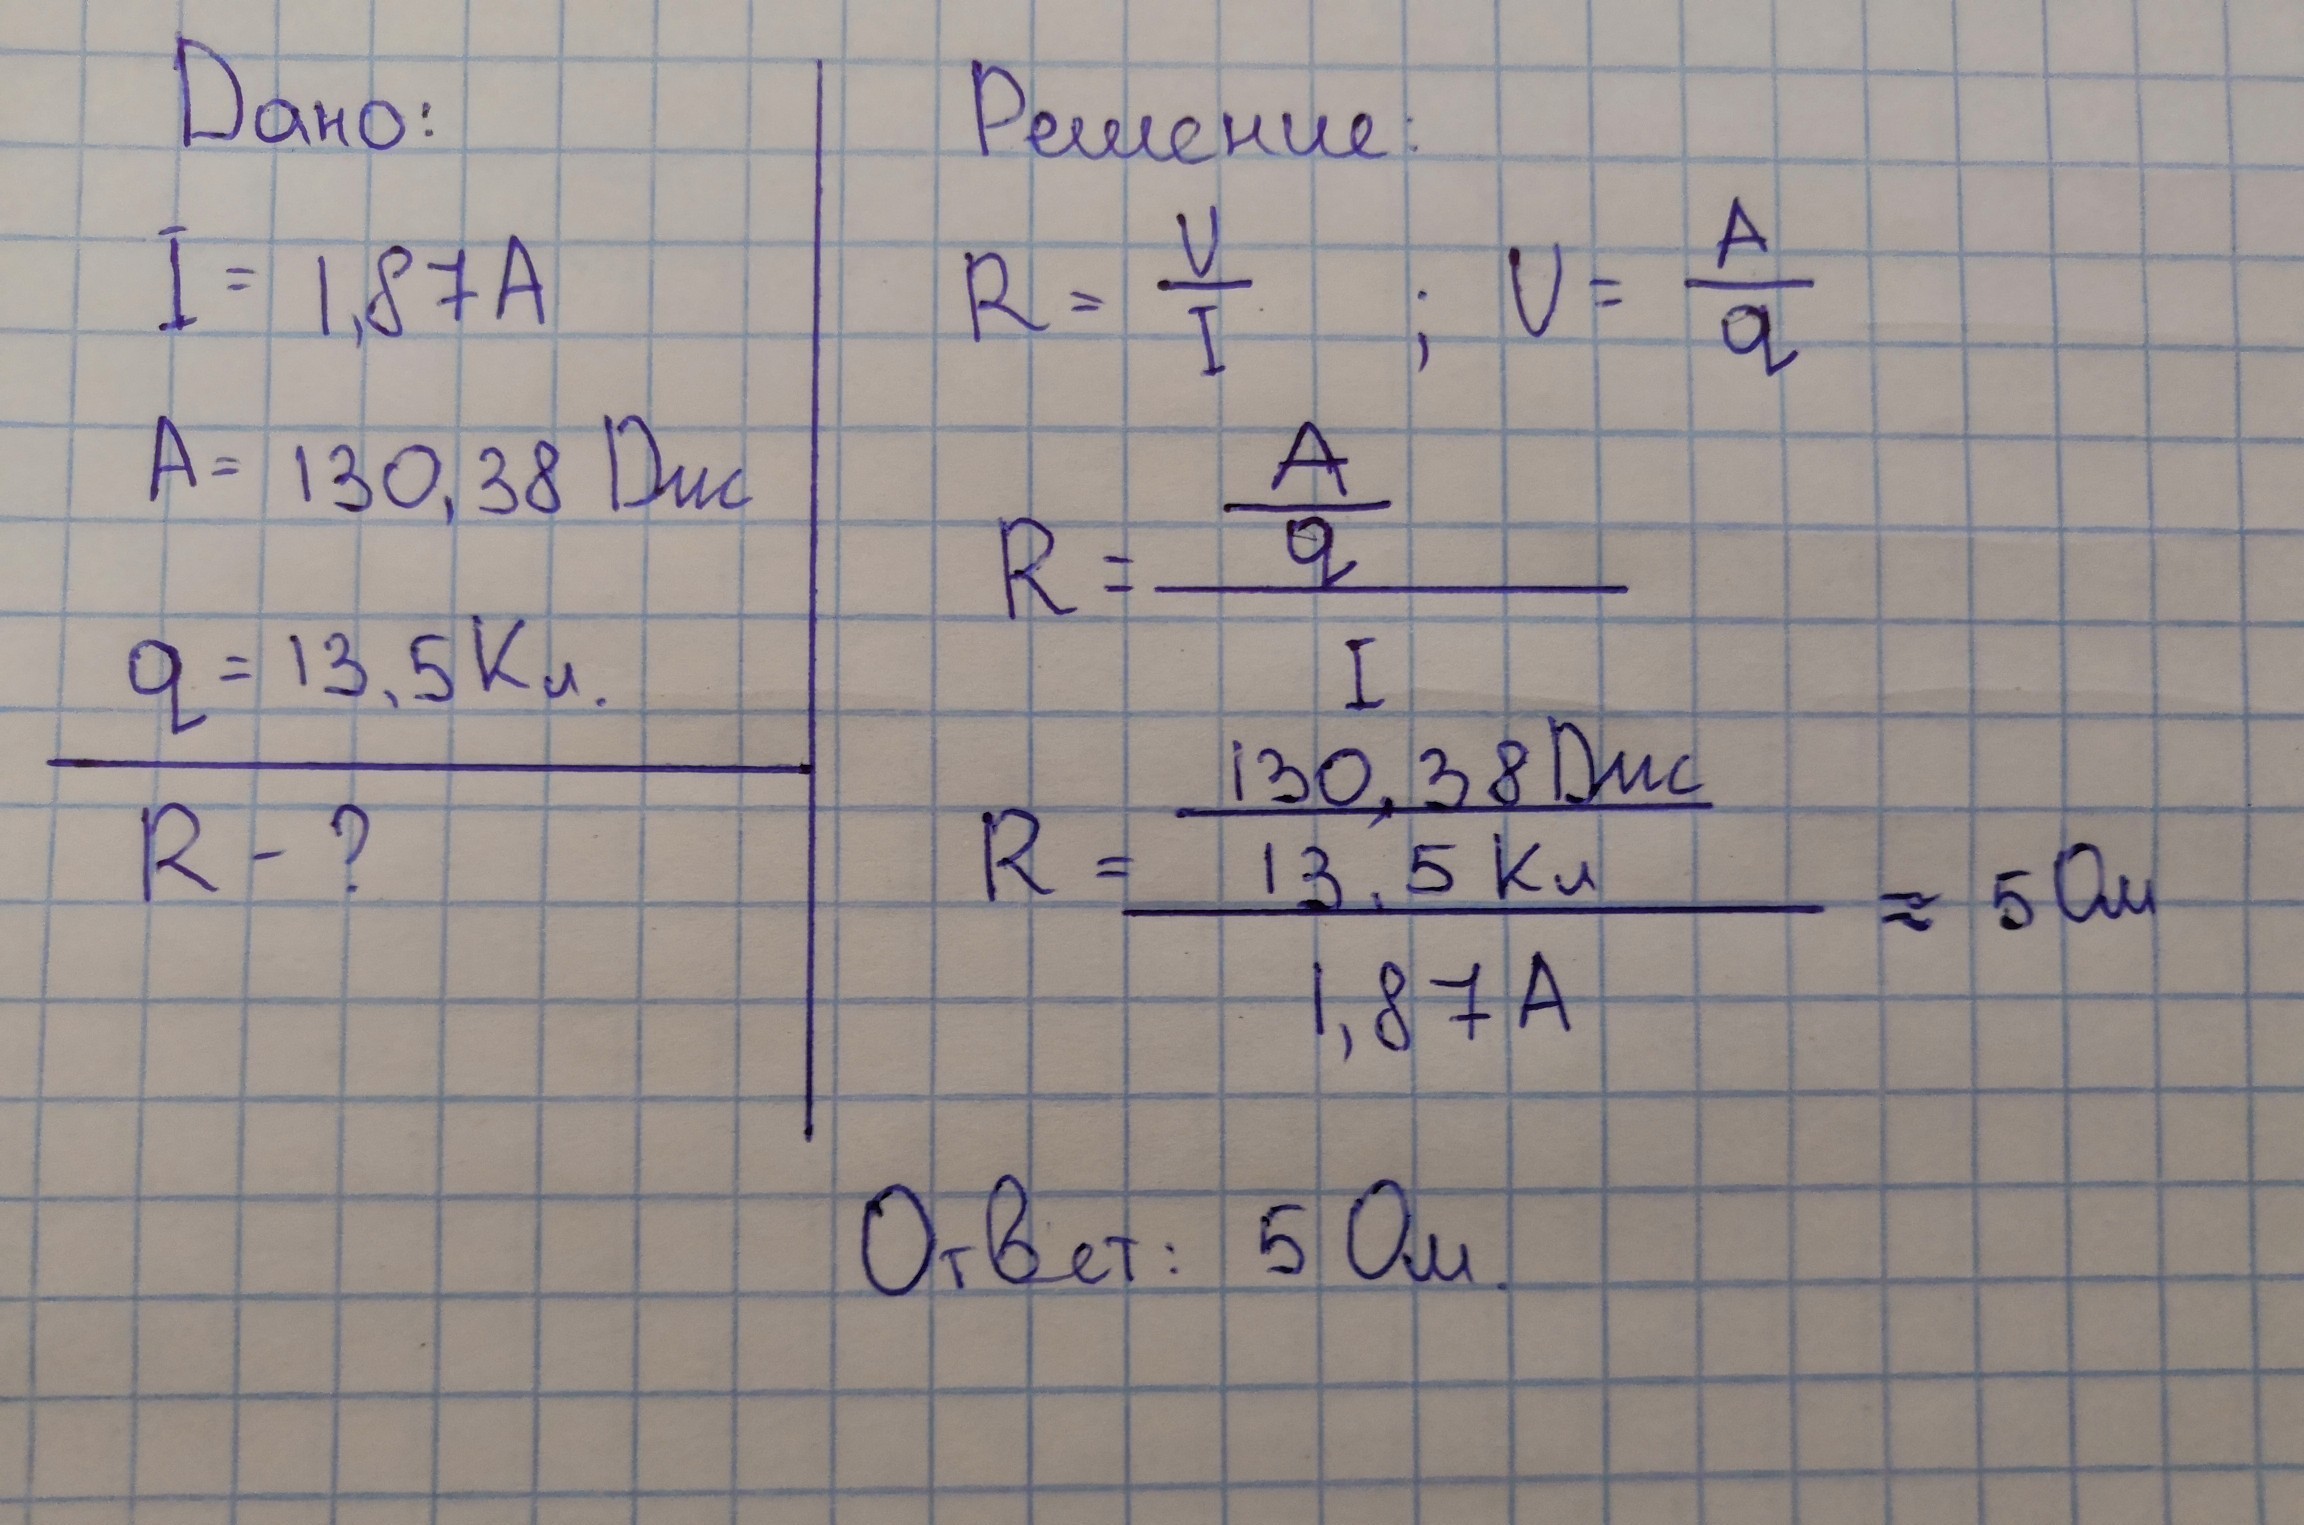 Дано:
I = 1,87 А
A = 130,38 Дж
q = 13,5 Кл.
R - ?
Решение:
R = U/I ; U = A/q
R = A/q / I
R = 130,38 Дж / 13,5 Кл / 1,87 А ≈ 5 Ом
Ответ: 5 Ом.